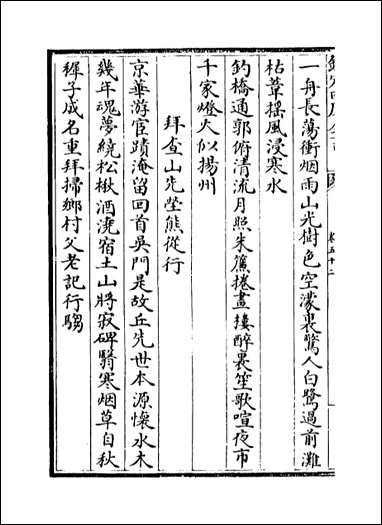 一舟長蕩衝烟雨山光樹色空濛裏驚人白鷺過前灘
枯葦揺風浸寒水
釣橋通郭俯清流月照朱簾捲畫摟醉裏笙歌喧夜市
千家燈火似揚州
拜查山先塋熊從行
京華游宦蹟淹留回首吳門是故丘先世本源懐水木
幾年魂夢繞松楸酒澆宿土山將寂碑翳寒烟草自秋
穉子成名重拜掃鄉村父老記行騶
卷五十二